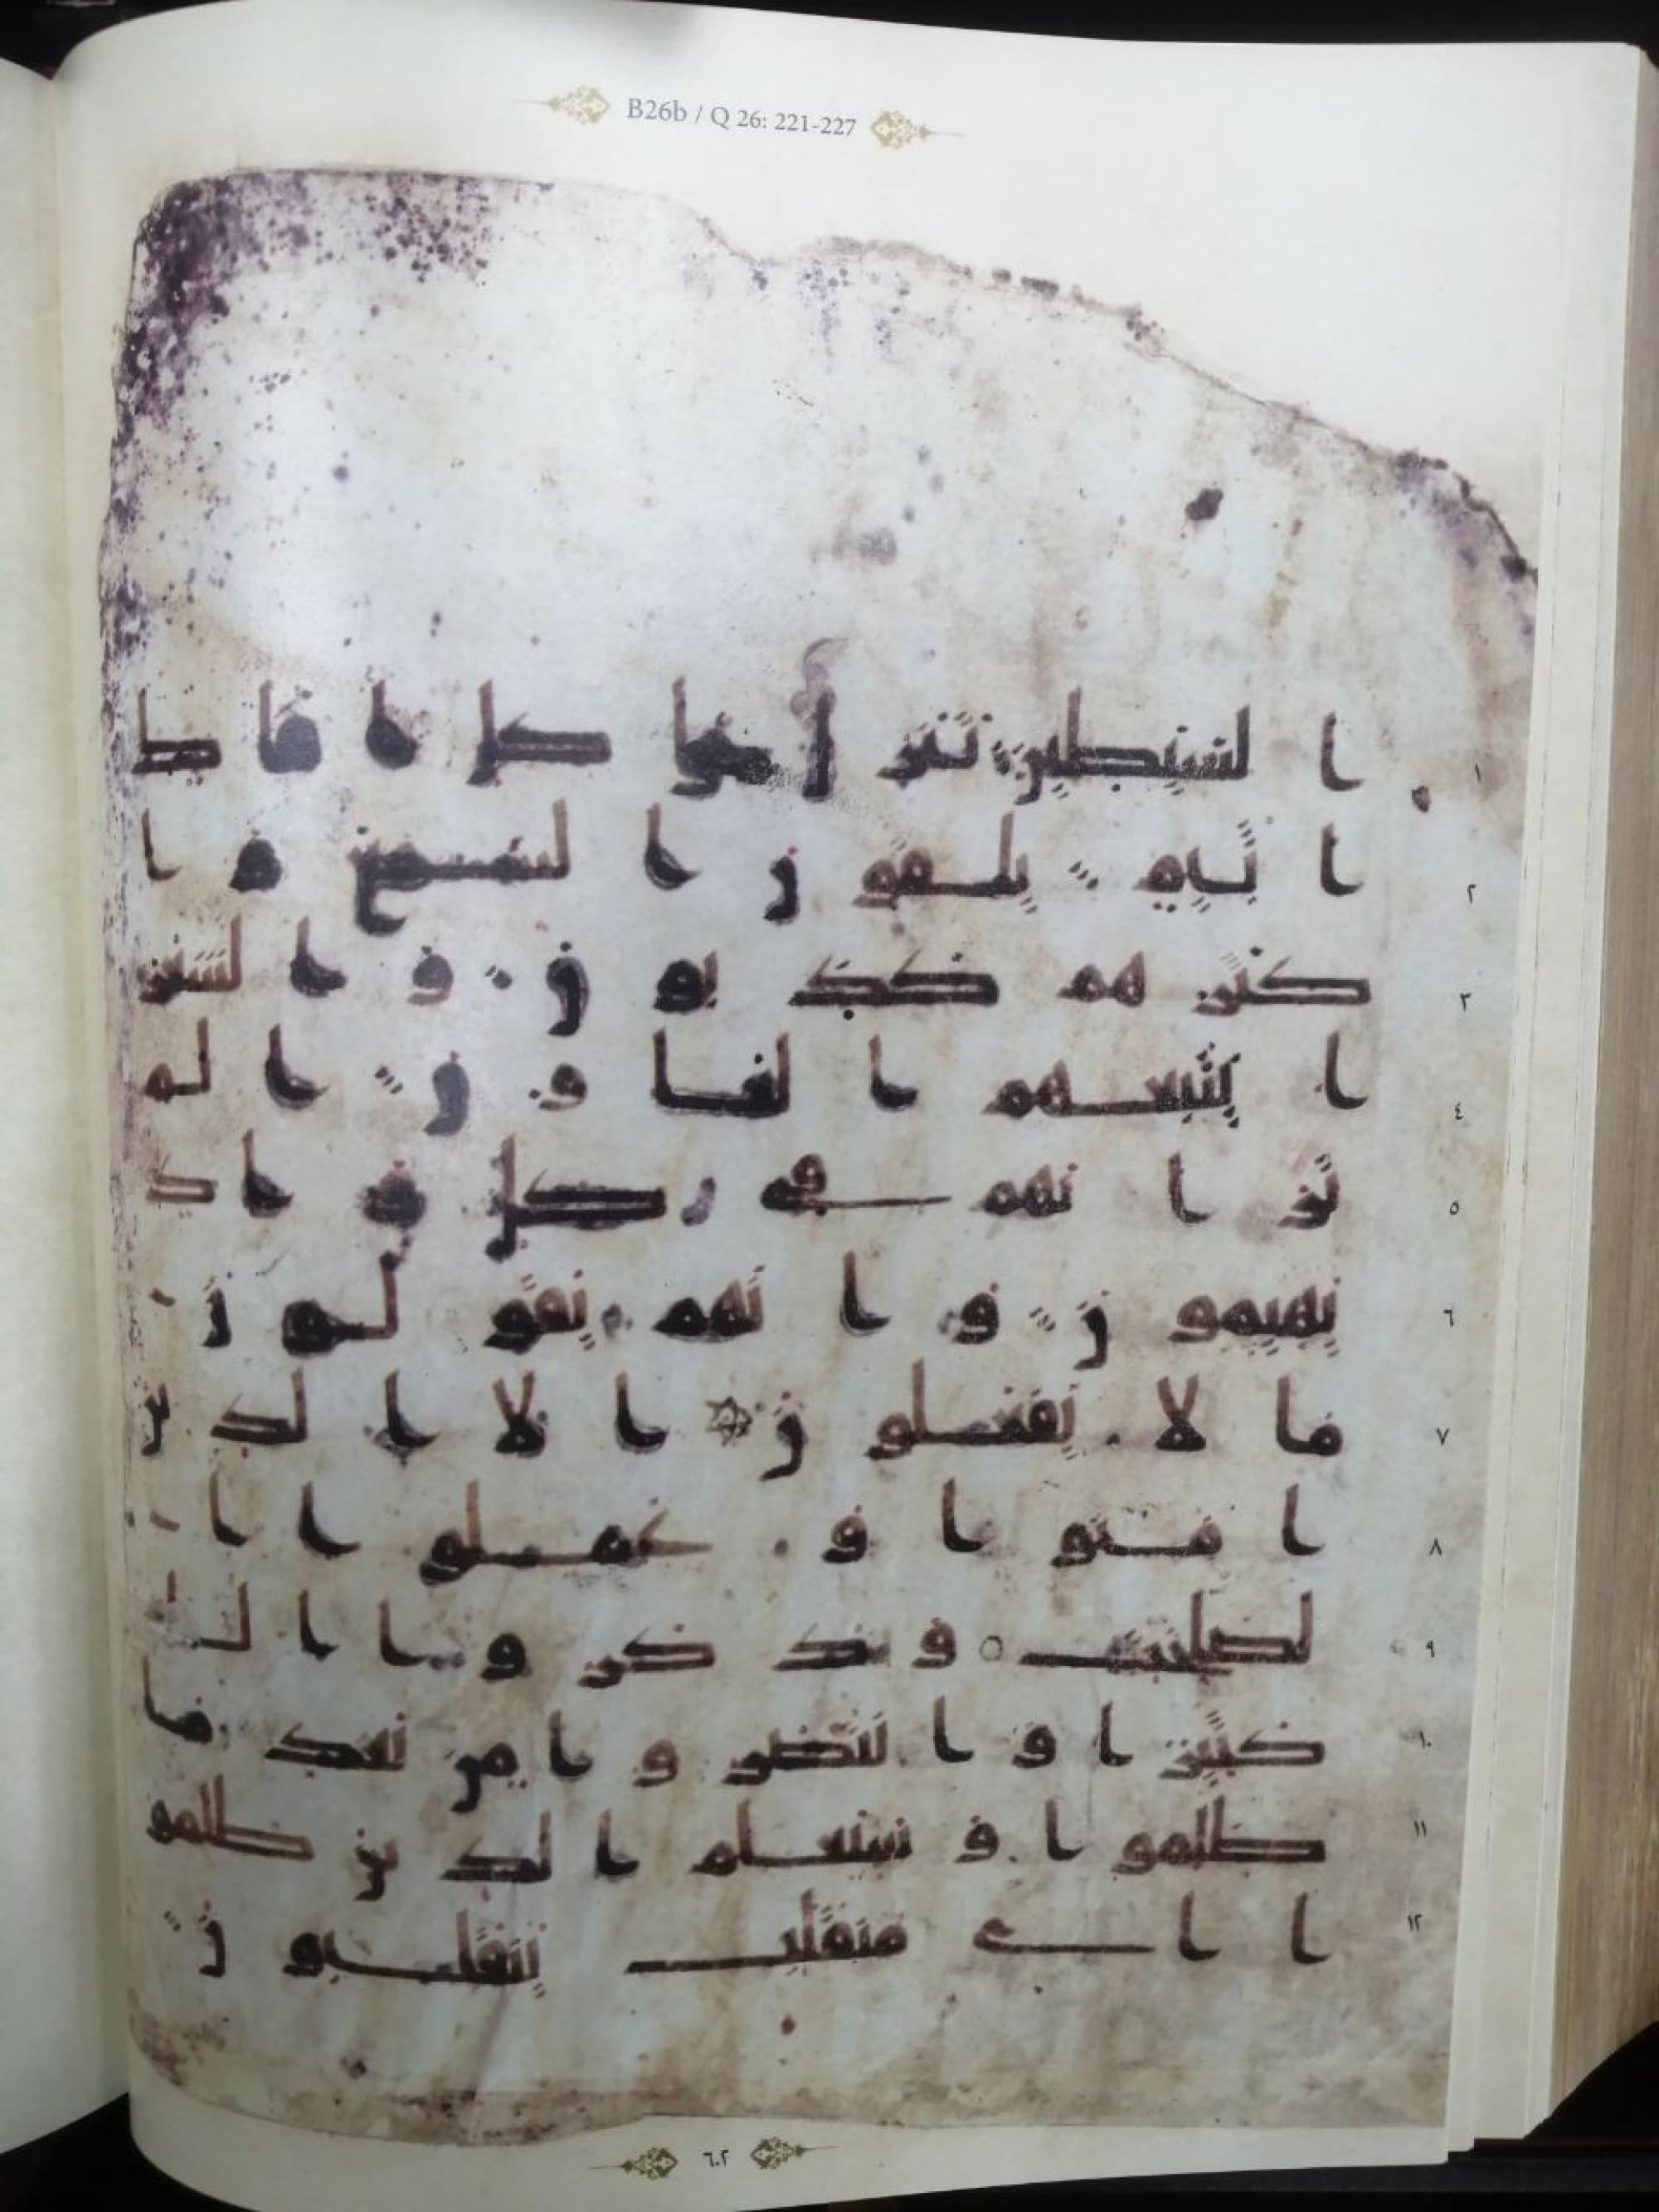 B26b / Q 26: 221-227
١ الشيطين تنزل على كل افاك
٢ اثيم يلقون السمع وا
٣ كثرهم كذبون والشعر
٤ ا يتبعهم الغاون الم
٥ تر انهم في كل واد
٦ يهيمون وانهم يقولون
٧ ما لا يفعلون الا الذين
٨ امنوا وعملوا ا
٩ لصلحت وذكروا الله
١٠ كثيرا وانتصروا من بعد ما
١١ ظلموا وسيعلم الذين ظلمو
١٢ ا اي منقلب ينقلبون
٦٠٢